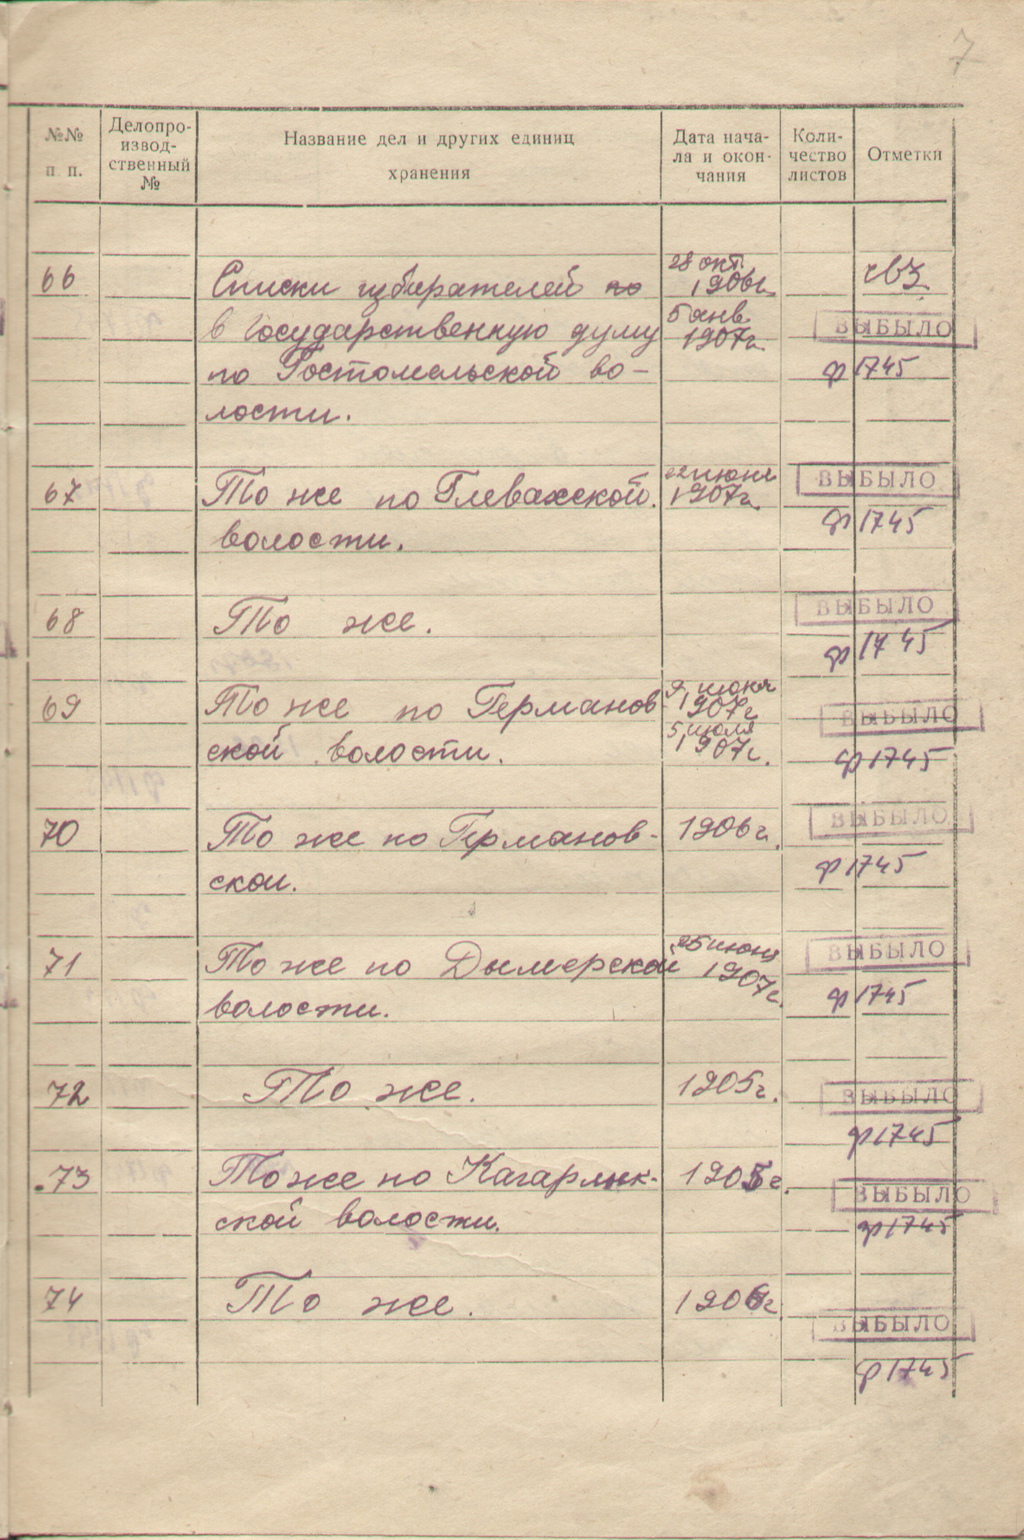 7
№№ п п.
Делопро-
извод-
ственный
№
Название дел и других единиц
хранения
Дата нача-
ла и окон-
чания
Коли-
чество
листов
Отметки
66
Списки избирателей по
в Государственную думу
по Гостомельской во-
лости.
28 окт.
1906г.
5 янв.
1907г.
ВЫБЫЛО
ф 1745
67
То же по Глевахской
волости.
22 июня
1907г.
ВЫБЫЛО
ф 1745
68
То же.
ВЫБЫЛО
ф 1745
69
То же по Германов
ской волости.
9 июня
1907г
5 июля
1907г.
ВЫБЫЛО
ф 1745
70
То же по Германов-
ской.
1906г.
ВЫБЫЛО
ф 1745
71
То же по Дымерской
волости.
25 июня
1907г.
ВЫБЫЛО
ф 1745
72
То же.
1905г.
ВЫБЫЛО
ф 1745
73
То же по Кагарлык-
ской волости.
1905г.
ВЫБЫЛО
ф 1745
74
То же.
1906г
ВЫБЫЛО
ф 1745